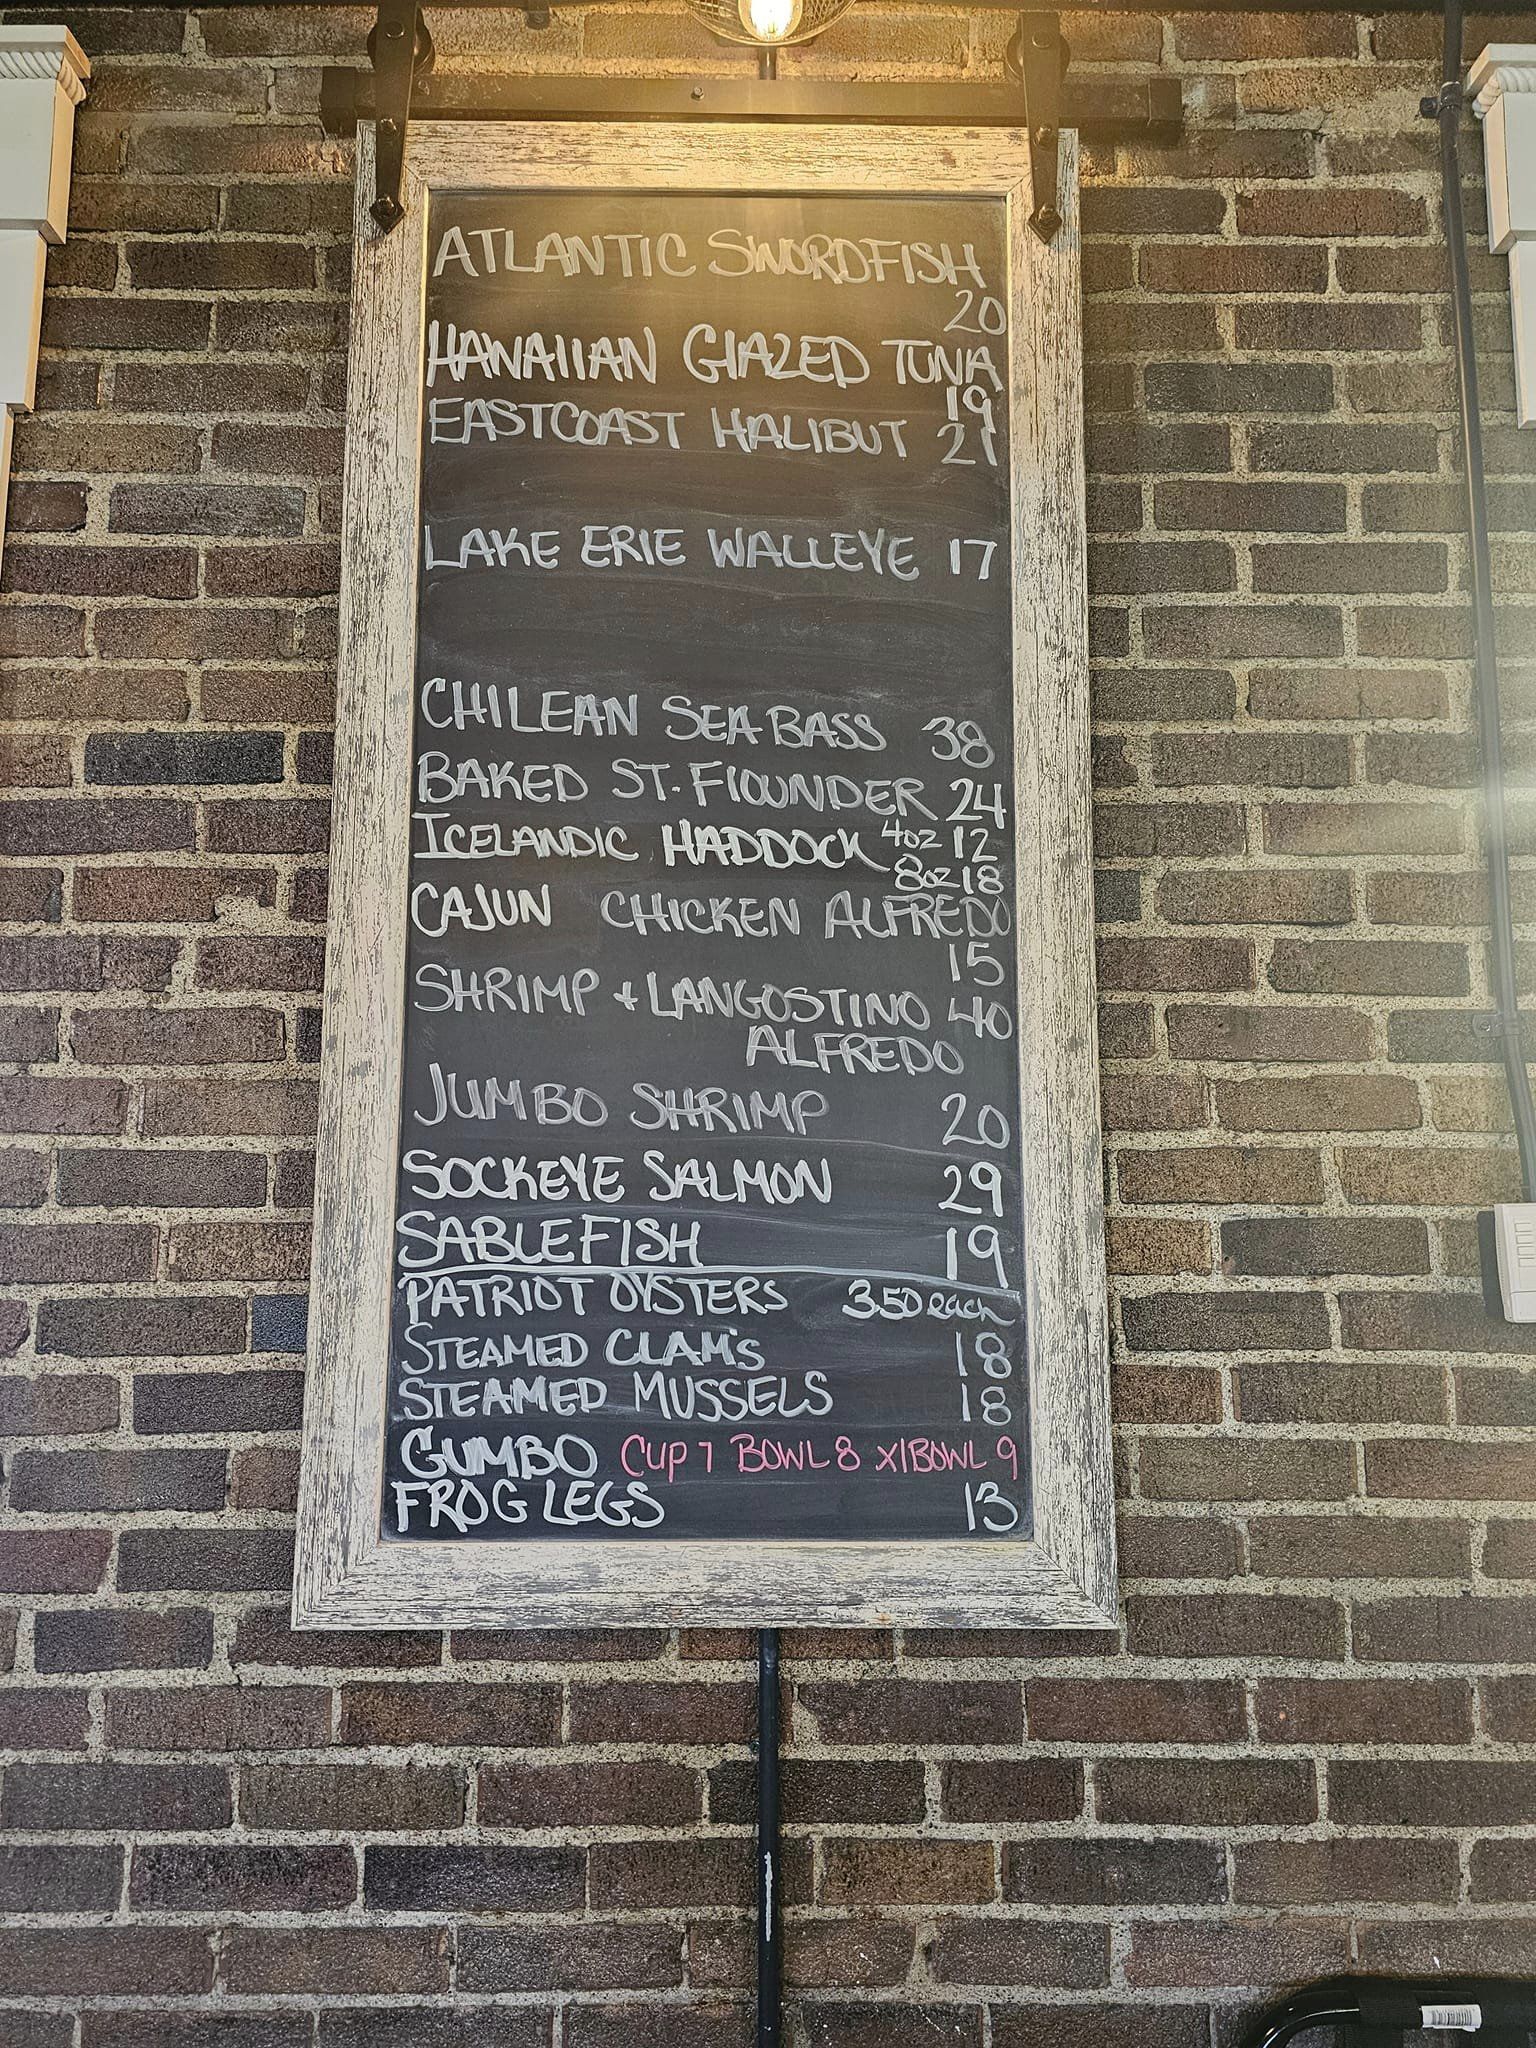 ATLANTIC SWORDFISH
20
HAWAIIAN GlAZED TUNA
19
EASTCOAST HALIBUT 21
LAKE ERIE WALLEYE 17
CHILEAN SEA BASS 38
BAKED ST. FlOUNDER 24
ICELANDIC HADDOCK 4oz 12
8oz 18
CAJUN CHICKEN ALFREDO
15
SHRIMP + LANGOSTINO 40
ALFREDO
JUMBO SHRIMP 20
SOCKEYE SALMON 29
SABLEFISH 19
PATRIOT OYSTERS 3.50 each
STEAMED CLAM'S 18
STEAMED MUSSELS 18
GUMBO CUP 7 BOWL 8 X/BOWL 9
FROG LEGS 13